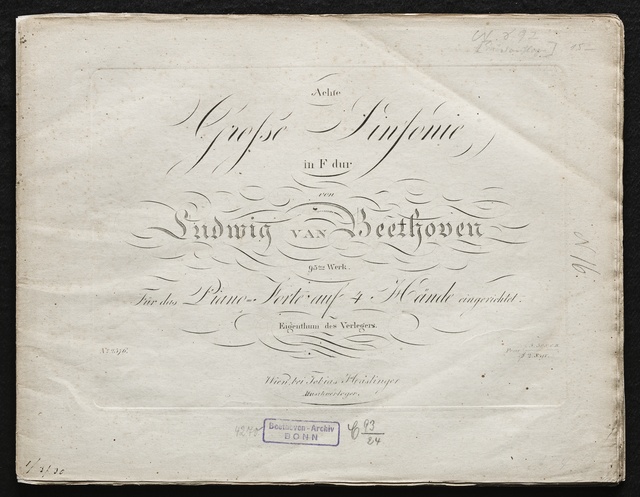 Achte
Große Sinfonie
in F dur
von
Ludwig van Beethoven
93tes Werk.
Für das Piano-Forte auf 4 Hände eingerichtet.
Eigenthum des Verlegers.
Wien, bei Tobias Haslinger
Musikverleger.
Beethoven-Archiv
BONN
C 93
24
N 16.